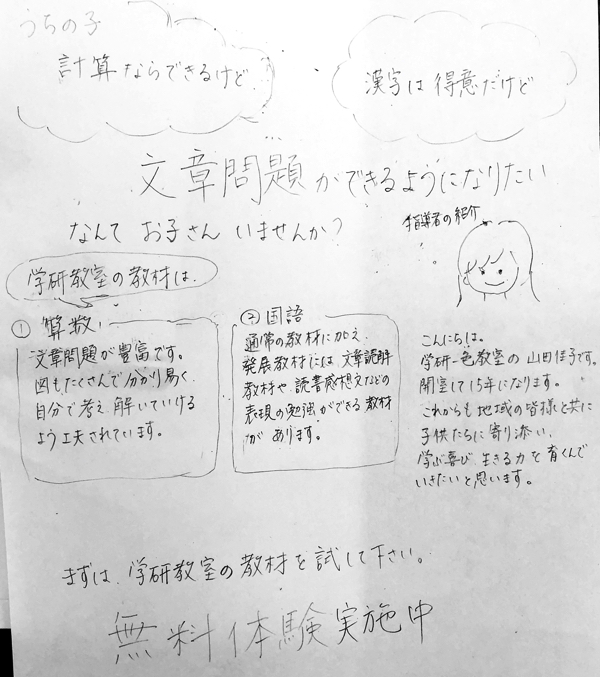 うちの子
計算ならできるけど
漢字は得意だけど
文章問題ができるようになりたい
なんて お子さん いませんか?
指導者の紹介
学研教室の教材は、
① 算数
文章問題が豊富です。
図もたくさんで分かり易く
自分で考え、解いていける
よう工夫されています。
② 国語
通常の教材に加え、
発展教材には、文章読解
教材や、読書感想文などの
表現の勉強ができる教材
があります。
こんにちは。
学研一色教室の山田佳子です。
開室して15年になります。
これからも地域の皆様と共に
子供たちに寄り添い、
学ぶ喜び 生きる力を育くんで
いきたいと思います。
まずは、学研教室の教材を試して下さい。
無料体験実施中